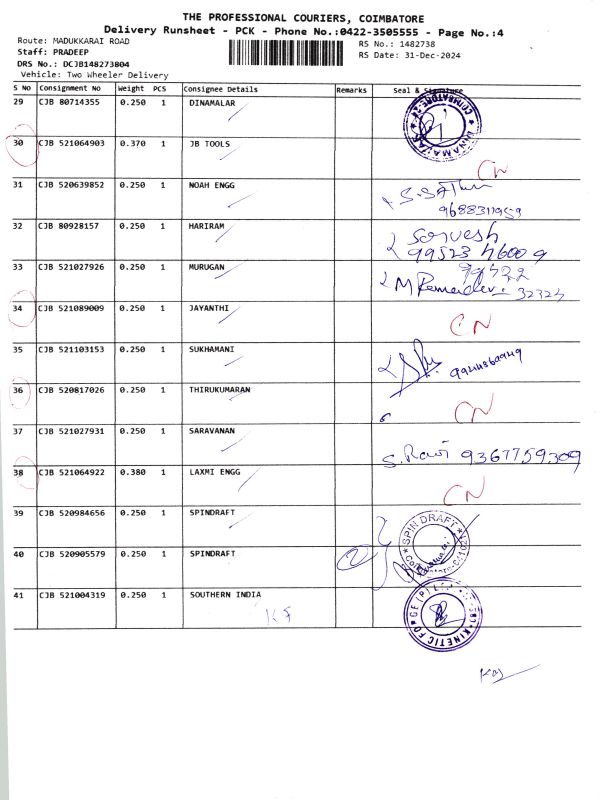 THE PROFESSIONAL COURIERS, COIMBATORE
Delivery Runsheet - PCK - Phone No.:0422-3505555 - Page No.:4
Route: MADUKKARAI ROAD
RS No.: 1482738
Staff: PRADEEP
RS Date: 31-Dec-2024
DRS No.: DCJB148273804
Vehicle: Two Wheeler Delivery
S No Consignment No Weight PCS Consignee Details Remarks Seal & Signature
29 CJB 80714355 0.250 1 DINAMALAR
30 CJB 521064903 0.370 1 JB TOOLS CN
31 CJB 520639852 0.250 1 NOAH ENGG
9688311959
32 CJB 80928157 0.250 1 HARIRAM Sarvesh
33 CJB 521027926 0.250 1 MURUGAN
34 CJB 521089009 0.250 1 JAYANTHI CN
35 CJB 521103153 0.250 1 SUKHAMANI
36 CJB 520817026 0.250 1 THIRUKUMARAN CN
37 CJB 521027931 0.250 1 SARAVANAN S. Ravi 9367759309
38 CJB 521064922 0.380 1 LAXMI ENGG CN
39 CJB 520984656 0.250 1 SPINDRAFT SPIN DRAFT
40 CJB 520905579 0.250 1 SPINDRAFT 2
41 CJB 521004319 0.250 1 SOUTHERN INDIA
KINETIC FORGE (P)